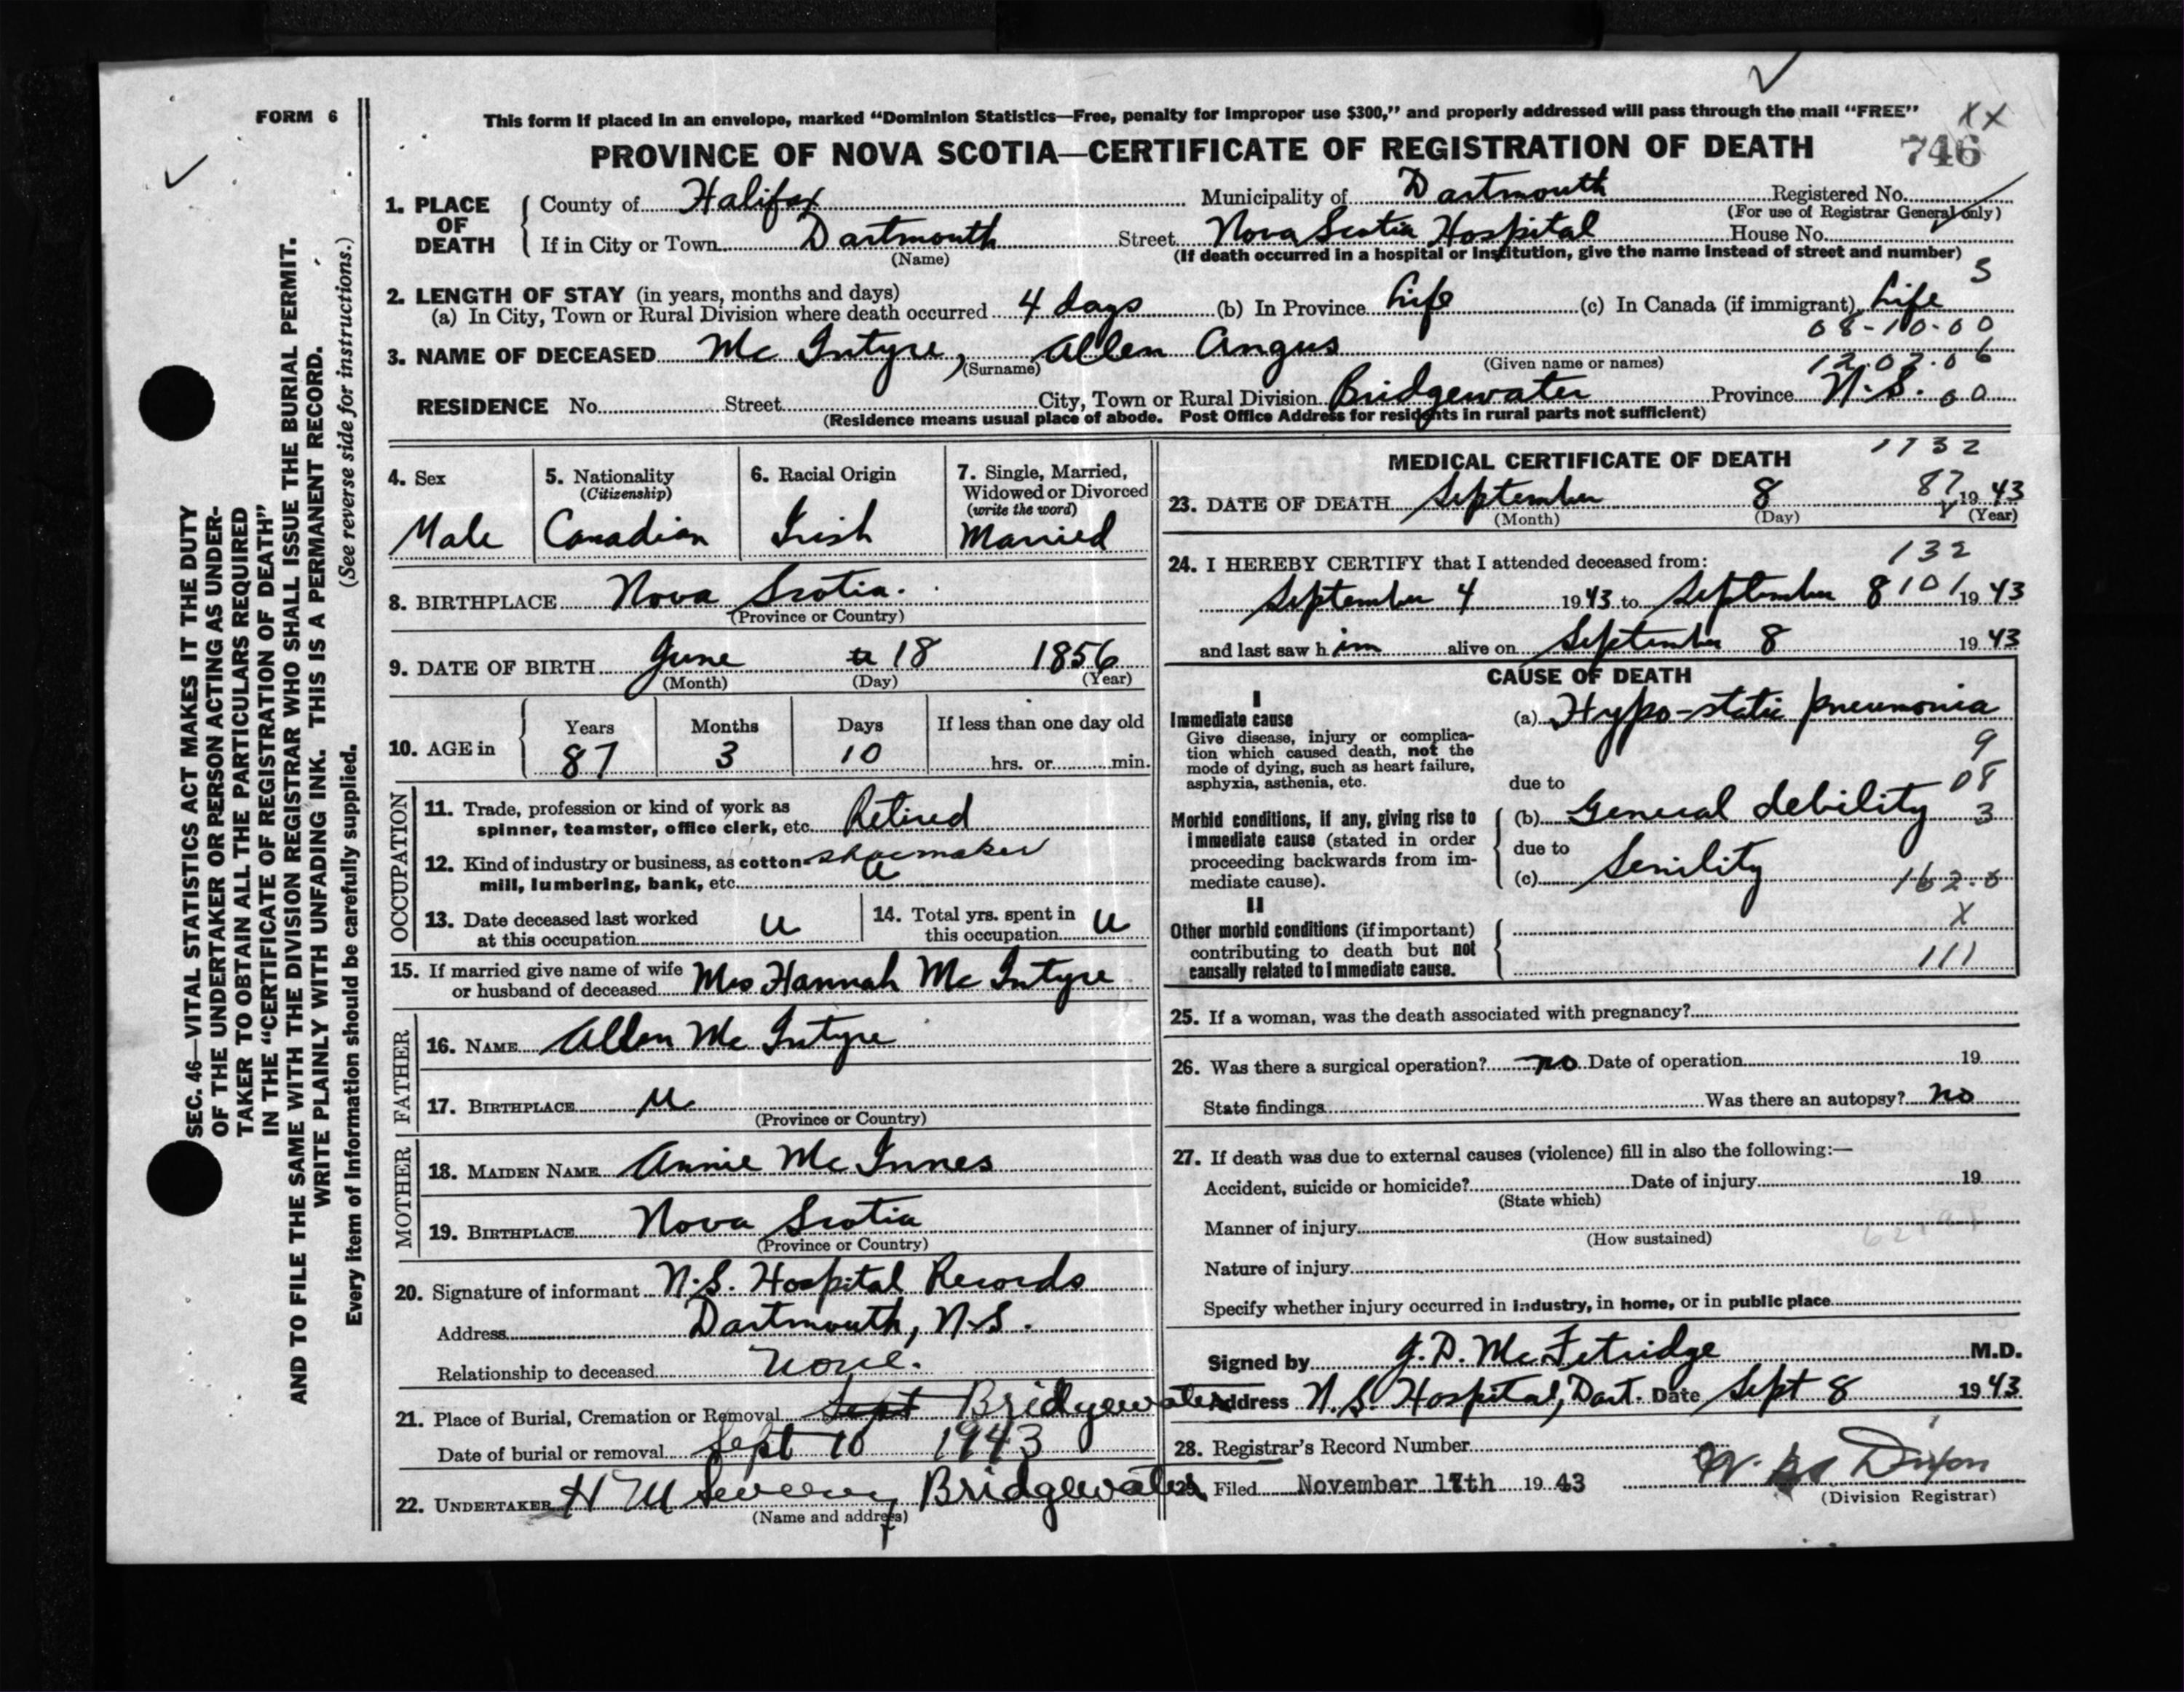 FORM 6
This form if placed in an envelope, marked "Dominion Statistics—Free, penalty for improper use $300," and properly addressed will pass through the mail "FREE"
XX
PROVINCE OF NOVA SCOTIA—CERTIFICATE OF REGISTRATION OF DEATH
746
1. PLACE OF DEATH
County of Halifax Municipality of Dartmouth Registered No.
(For use of Registrar General only)
If in City or Town Dartmouth Street Nova Scotia Hospital House No.
(Name) (If death occurred in a hospital or institution, give the name instead of street and number)
3
2. LENGTH OF STAY (in years, months and days)
(a) In City, Town or Rural Division where death occurred 4 days (b) In Province Life (c) In Canada (if immigrant) Life
08-10-00
3. NAME OF DECEASED Mc Intyre, Allen Angus
(Surname) (Given name or names) 12.07.06
RESIDENCE No. Street City, Town or Rural Division Bridgewater Province N.S. 00
(Residence means usual place of abode. Post Office Address for residents in rural parts not sufficient)
4. Sex
Male
5. Nationality
(Citizenship)
Canadian
6. Racial Origin
Irish
7. Single, Married,
Widowed or Divorced
(write the word)
Married
8. BIRTHPLACE Nova Scotia.
(Province or Country)
9. DATE OF BIRTH June 18 1856
(Month) (Day) (Year)
10. AGE in
Years Months Days If less than one day old
87 3 10 hrs. or min.
OCCUPATION
11. Trade, profession or kind of work as
spinner, teamster, office clerk, etc. Retired
12. Kind of industry or business, as cotton shoemaker
mill, lumbering, bank, etc. u
13. Date deceased last worked
at this occupation u
14. Total yrs. spent in
this occupation u
15. If married give name of wife
or husband of deceased Mrs Hannah Mc Intyre
FATHER
16. NAME Allen Mc Intyre
17. BIRTHPLACE u
(Province or Country)
MOTHER
18. MAIDEN NAME Annie Mc Innes
19. BIRTHPLACE Nova Scotia
(Province or Country)
20. Signature of informant N.S. Hospital Records
Address Dartmouth, N.S.
Relationship to deceased None.
21. Place of Burial, Cremation or Removal Sept Bridgewater
Date of burial or removal Sept 10 1943
22. UNDERTAKER H M Bridgewater
(Name and address)
MEDICAL CERTIFICATE OF DEATH
1132
23. DATE OF DEATH September 8 87 1943
(Month) (Day) (Year)
24. I HEREBY CERTIFY that I attended deceased from: 132
September 4 1943 to September 8 101 1943
and last saw h im alive on September 8 1943
CAUSE OF DEATH
I
Immediate cause
Give disease, injury or complica-
tion which caused death, not the
mode of dying, such as heart failure,
asphyxia, asthenia, etc.
(a) Hypo-static pneumonia
9
due to
08
Morbid conditions, if any, giving rise to
immediate cause (stated in order
proceeding backwards from im-
mediate cause).
(b) General debility 3
due to
(c) Senility 162.0
II
Other morbid conditions (if important)
contributing to death but not
causally related to immediate cause.
X
111
25. If a woman, was the death associated with pregnancy?
26. Was there a surgical operation? no Date of operation 19
State findings Was there an autopsy? no
27. If death was due to external causes (violence) fill in also the following:—
Accident, suicide or homicide? Date of injury 19
(State which)
Manner of injury
(How sustained)
Nature of injury
Specify whether injury occurred in industry, in home, or in public place
Signed by J. D. McFetridge M.D.
Address N.S. Hospital, Dart. Date Sept 8 1943
28. Registrar's Record Number
29. Filed November 17th 1943 Dixon
(Division Registrar)
SEC. 46—VITAL STATISTICS ACT MAKES IT THE DUTY
OF THE UNDERTAKER OR PERSON ACTING AS UNDER-
TAKER TO OBTAIN ALL THE PARTICULARS REQUIRED
IN THE "CERTIFICATE OF REGISTRATION OF DEATH"
AND TO FILE THE SAME WITH THE DIVISION REGISTRAR WHO SHALL ISSUE THE BURIAL PERMIT.
WRITE PLAINLY WITH UNFADING INK. THIS IS A PERMANENT RECORD.
Every item of information should be carefully supplied. (See reverse side for instructions.)